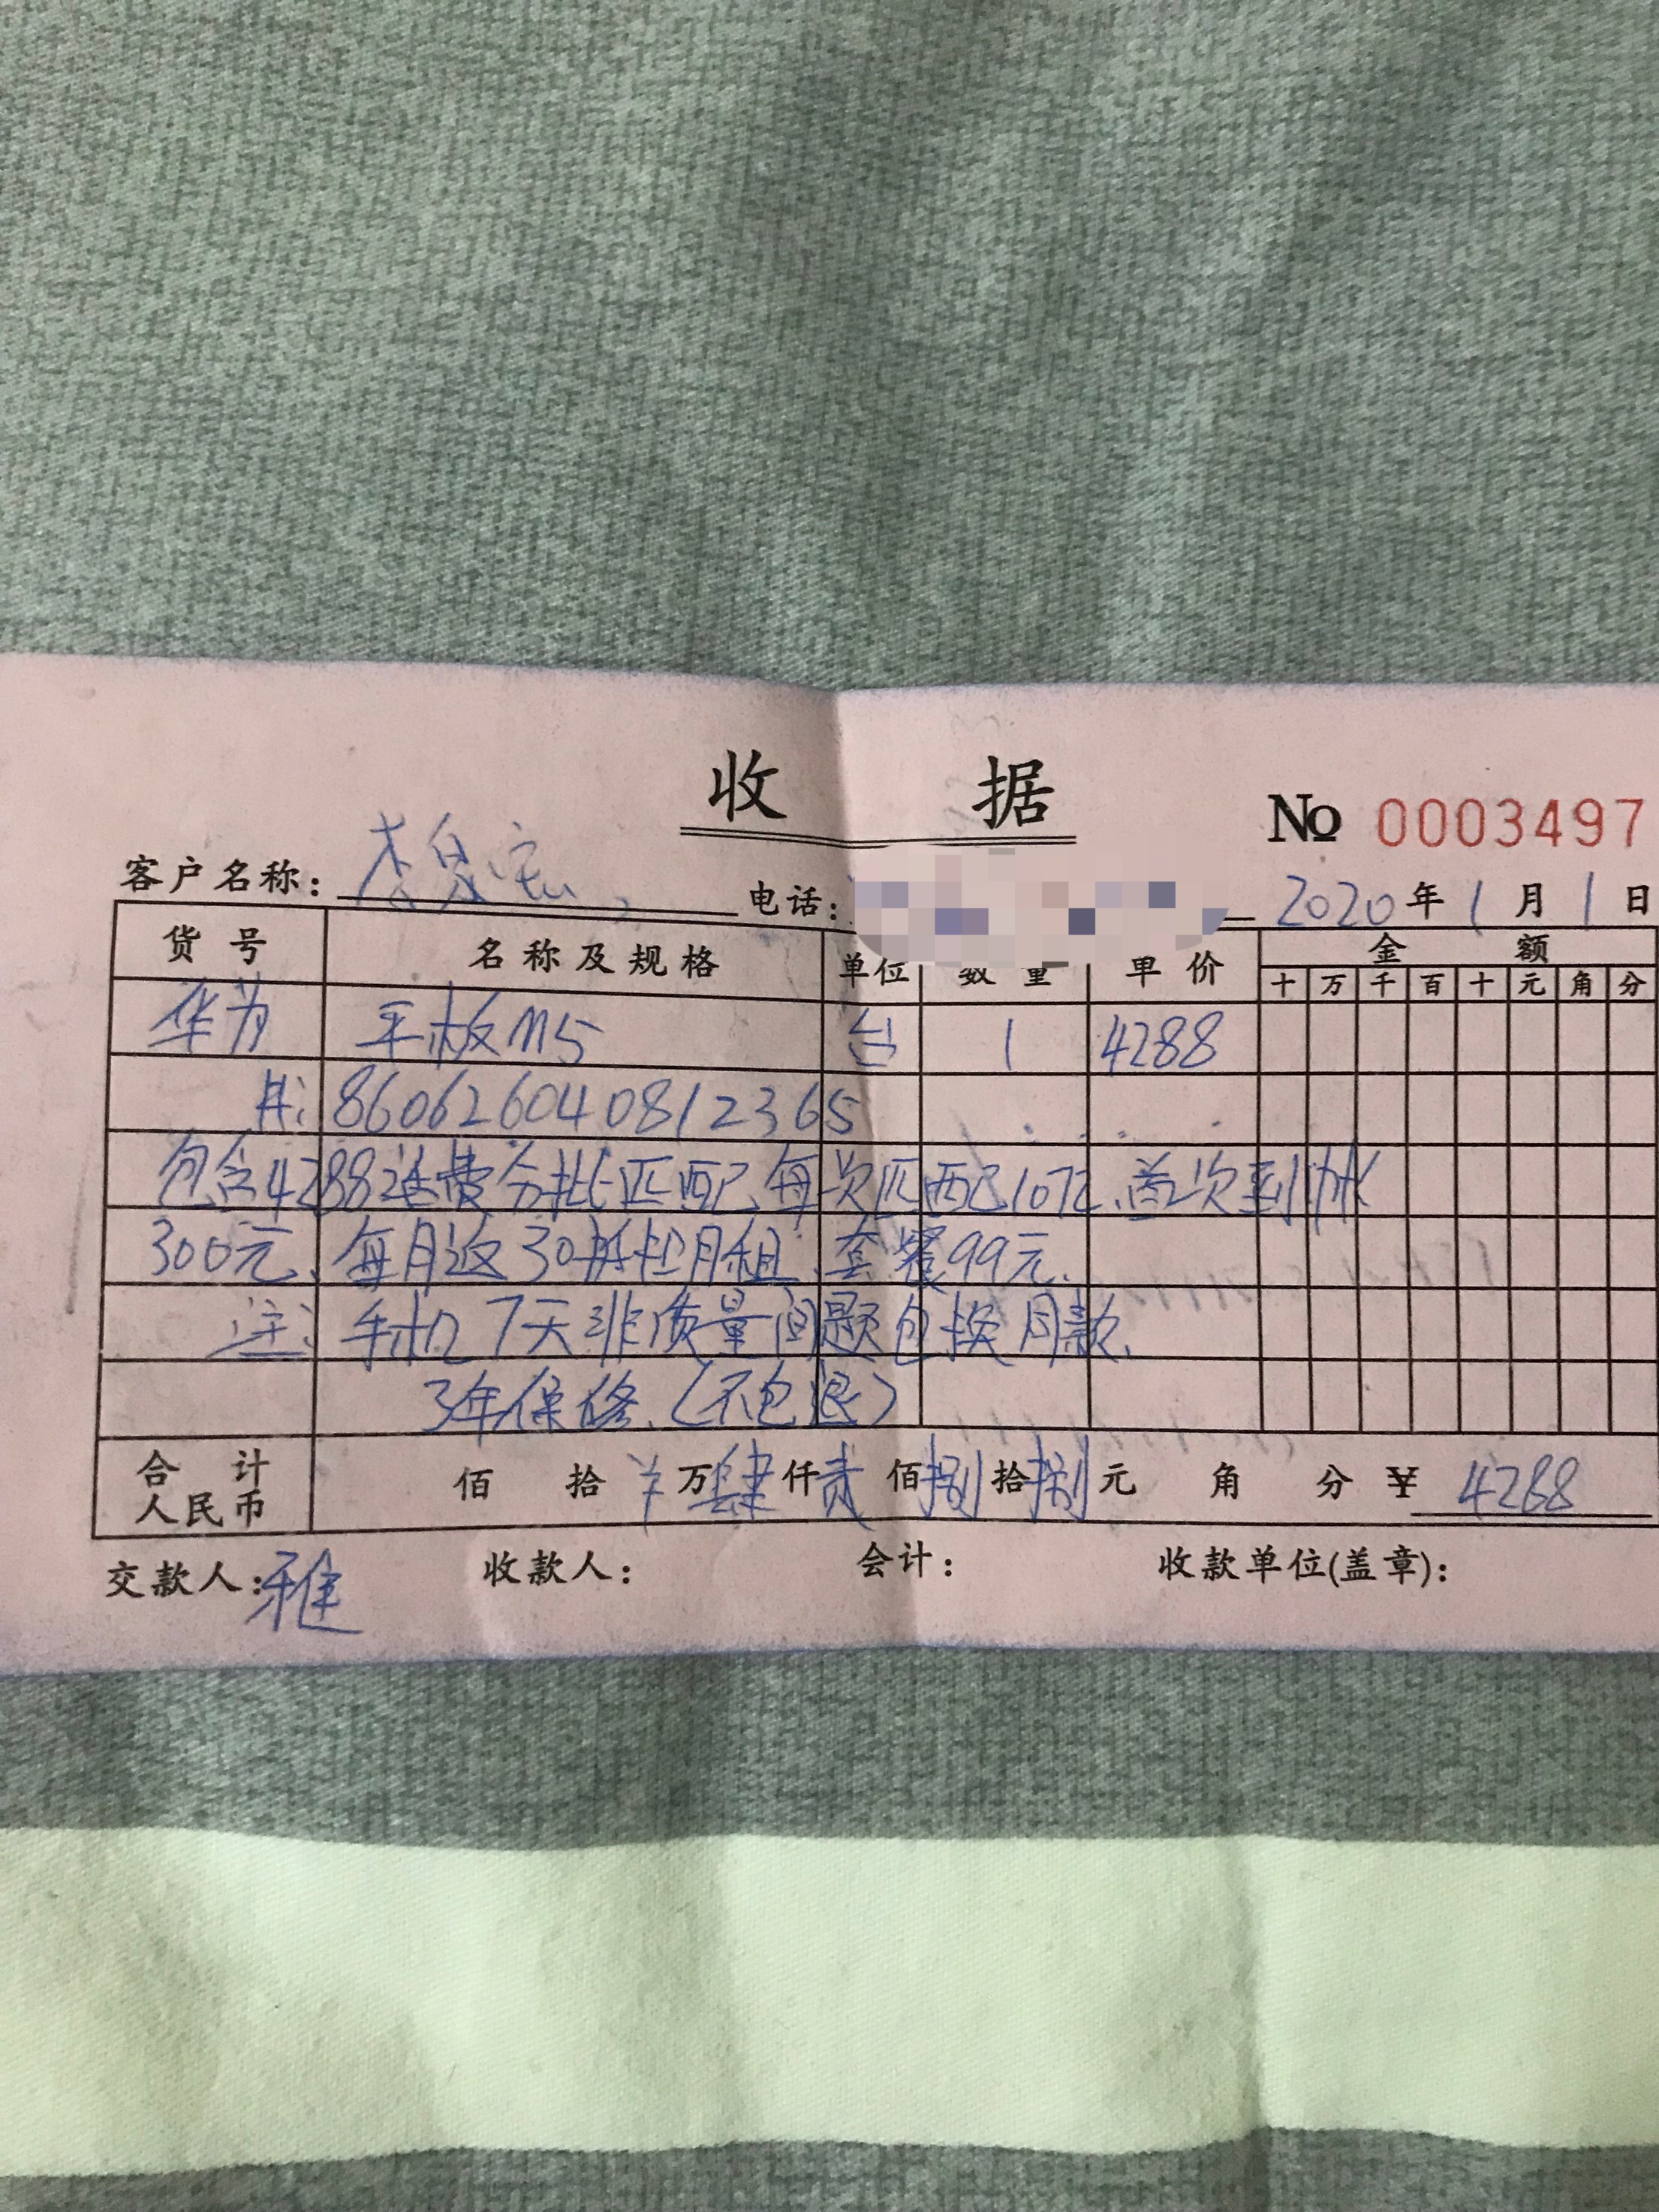 收 据
No 0003497
客户名称: 李 电话: 2020年1月1日
货号 名称及规格 单位 数量 单价 金额
十 万 千 百 十 元 角 分
华为 平板M5 台 1 4288
860626040812365
包含4288话费分批匹配,每次匹配107元,首次到帐
300元,每月返30抵扣月租,套餐99元.
注: 手机7天非质量问题包换同款.
3年保修.(不包退)
合计人民币 佰 拾 ¥万肆仟贰佰捌拾捌元 角 分 ¥ 4288
交款人: 雅 收款人: 会计: 收款单位(盖章):